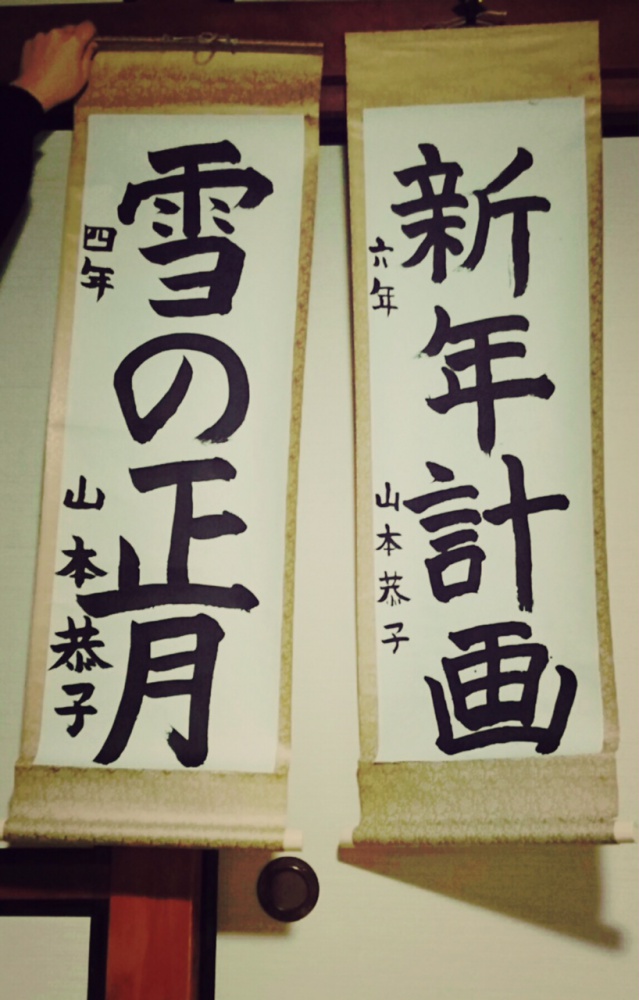 新年計画
六年 山本恭子
雪の正月
四年 山本恭子